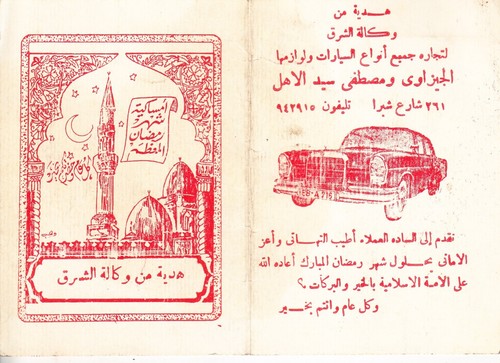 هدية من
وكالة الشرق
لتجاره جميع أنواع السيارات ولوازمها
الجيزاوى ومصطفى سيد الأهل
٢٦١ شارع شبرا تليفون ٩٤٢٩١٥
EB-A 716
نقدم إلى الساده العملاء أطيب التهانى وأعز
الامانى بحلول شهر رمضان المبارك أعاده الله
على الامة الاسلامية بالخير والبركات ؟
وكل عام وانتم بخير
إمساكية
شهر
رمضان
المعظم
هدية من وكالة الشرق